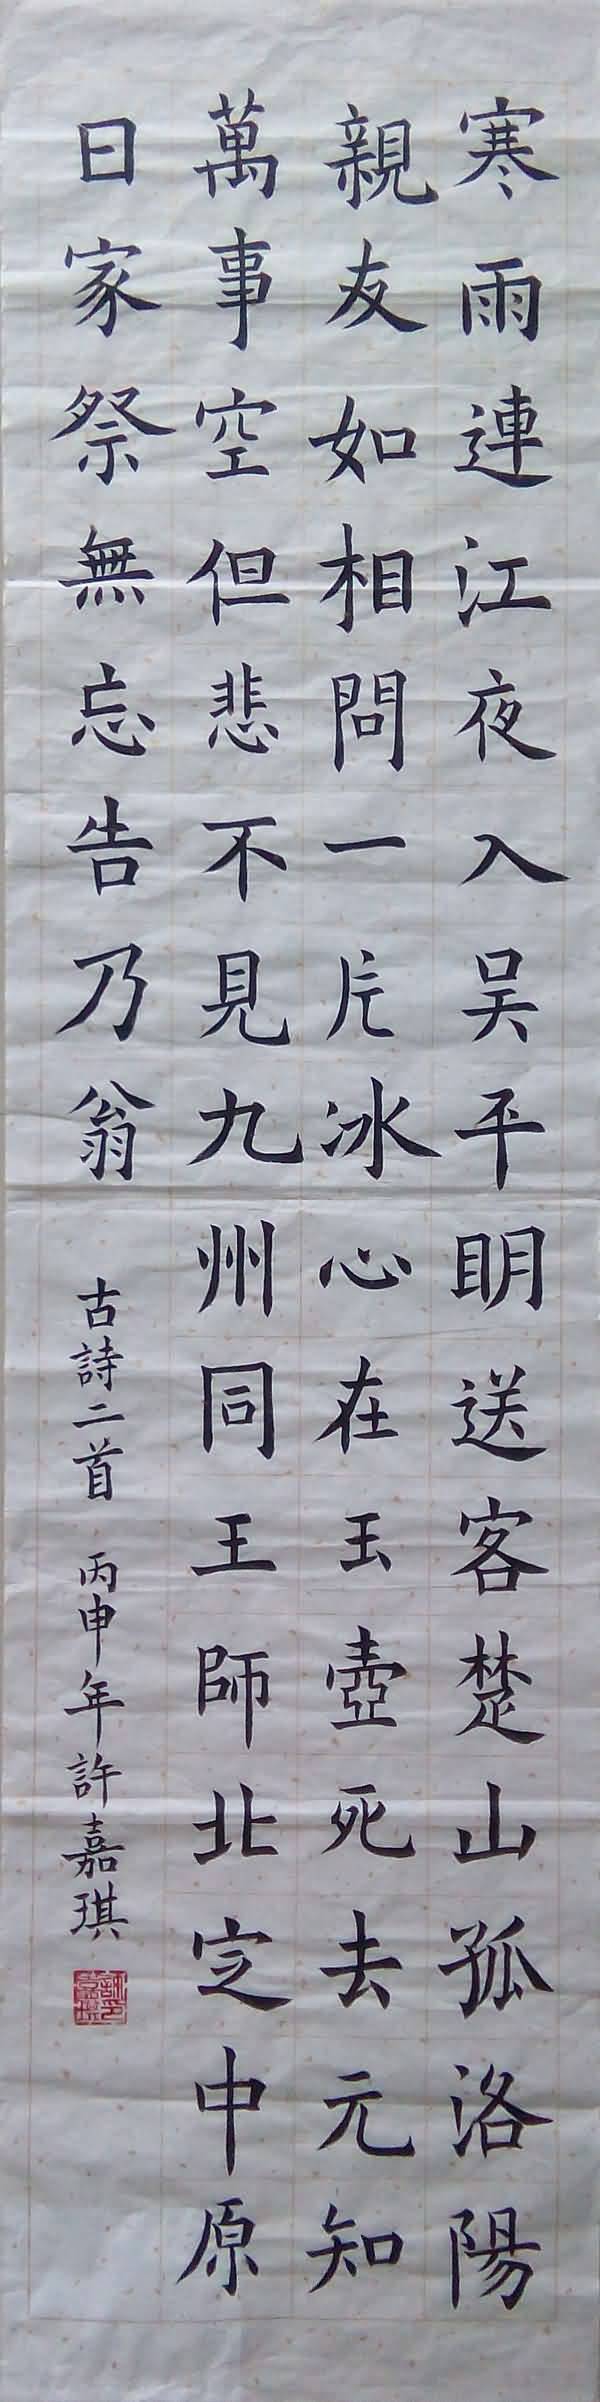 寒雨連江夜入吴平眀送客楚山孤洛陽
親友如相問一片冰心在玉壺死去元知
萬事空但悲不見九州同王師北定中原
日家祭無忘告乃翁
古詩二首 丙申年許嘉琪